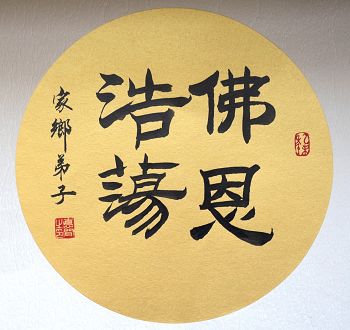 佛恩
浩蕩
家鄉弟子